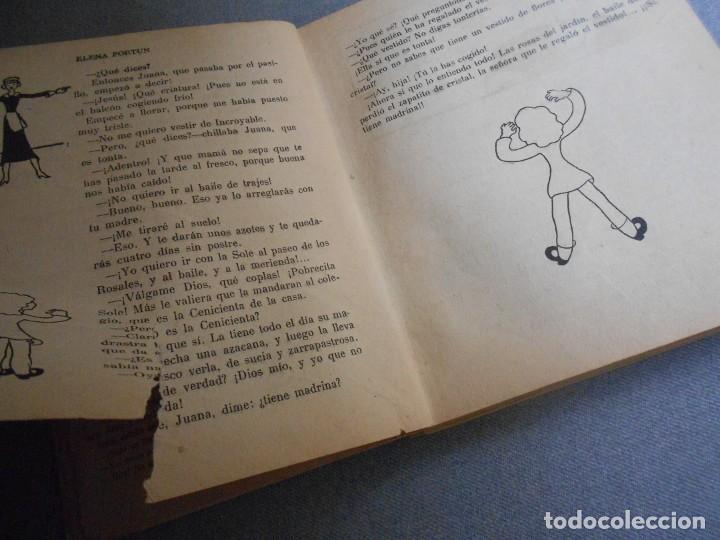 ELENA FORTUN
—¿Qué dices?
Entonces Juana, que pasaba por el pasi-
llo, empezó a decir:
—¡Jesús! ¡Qué criatura! ¡Pues no está en
el balcón cogiendo frío!
Empecé a llorar, porque me había puesto
muy triste.
—No me quiero vestir de Incroyable.
—Pero, ¿qué dices?—chillaba Juana, que
es tonta.
—¡Adentro! ¡Y que mamá no sepa que te
has pasado la tarde al fresco, porque buena
nos había caído!
—¡No quiero ir al baile de trajes!
—Bueno, bueno. Eso ya lo arreglarás con
tu madre.
—¡Me tiraré al suelo!
—Eso. Y te darán unos azotes y te queda-
rás cuatro días sin postre.
—¡Yo quiero ir con la Sole al paseo de los
Rosales, y al baile, y a la merienda!...
—¡Válgame Dios, qué coplas! ¡Pobrecita
Sole! Más le valiera que la mandaran al cole-
gio, que es la Cenicienta de la casa.
—¿Pero es la Cenicienta?
—Claro que sí. La tiene todo el día su ma-
drastra echa una azacana, y luego la lleva
que da asco verla, de sucia y zarrapastrosa.
—¿Es de verdad? ¡Dios mío, y yo que no
sabía nada!
—Oye, Juana, dime: ¿tiene madrina?
—¿Yo qué sé? ¡Qué
—¿Pues quién le ha regalado el
—¿Qué vestido? No digas tonterías.
—¡Ella sí que es tonta!
—¿Pero no sabes que tiene un vestido de flores
cristal?
—¡Ay, hija! ¡Ya la has cogido!
¡Ahora sí que lo entiendo todo! Las rosas del jardín, el baile
perdió el zapatito de cristal, la señora que le regaló el vestido!...
tiene madrina!!
todocoleccion
todocoleccion.net